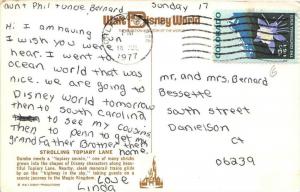 aunt Phil + uncle Bernard
Sunday 17
Walt Disney World
Hi. I am having
fun I wish you were
hear. I went to
ocean world that was
nice. we are going to
Disney world tomorrow
then to South Carolina
to see my cousins
Then to penn to get my
grand Father Brother then home.
Love
Linda
1977
COLORADO
mr, and mrs. Bernard
Bessette
south street
Danielson
Ct
06239
STROLLING TOPIARY LANE
Dumbo meets a "topiary mouse," one of many shrubs
grown into the shape of Disney characters along beau-
tiful Topiary Lane. Nearby, sleek monorail trains glide
by on the "highway in the sky," taking guests on a
scenic journey to the Magic Kingdom.